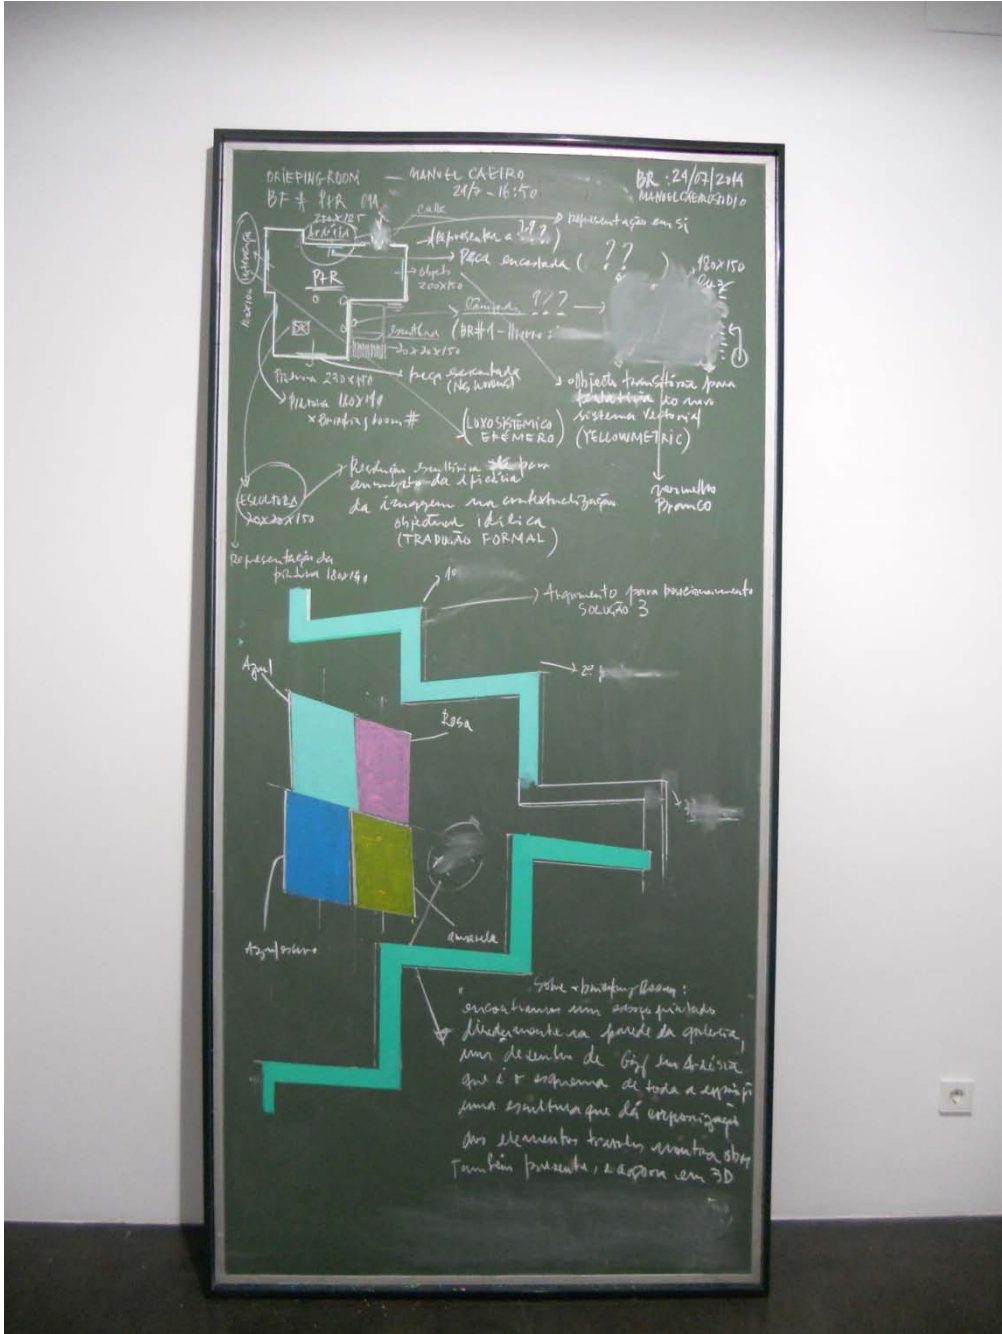 BRIEFING ROOM — MANUEL CAEIRO
21/7 - 16:50
BR: 24/07/2014
BF # P+R
calle
representação em si
(representar a ???)
Peça encostada ( ?? )
180x150
P+R
objeto
200x150
???
escultura (BR#1-
20x20x150
peça encostada
Pintura 230x190
Pintura 180x190
x Briefing room #
(LUXO SISTÉMICO
EFÉMERO)
Objecto transitório para
ao novo
sistema vectorial
(YELLOWMETRIC)
vermelho
Branco
ESCULTURA
20x20x150
Redução escultórica para
aumento da eficácia
da imagem na contextualização
objectual idílica
(TRADUÇÃO FORMAL)
Representação da
pintura 180x190
Argumento para posicionamento
SOLUÇÃO 3
2º
Azul
Rosa
Azul escuro
amarelo
Sobre briefing Room:
encontramos um esboço pintado
directamente na parede da galeria,
um desenho de Giz em Ardósia
que é o esquema de toda a
uma escultura que dá corporização
aos elementos
Também presente, e agora em 3D